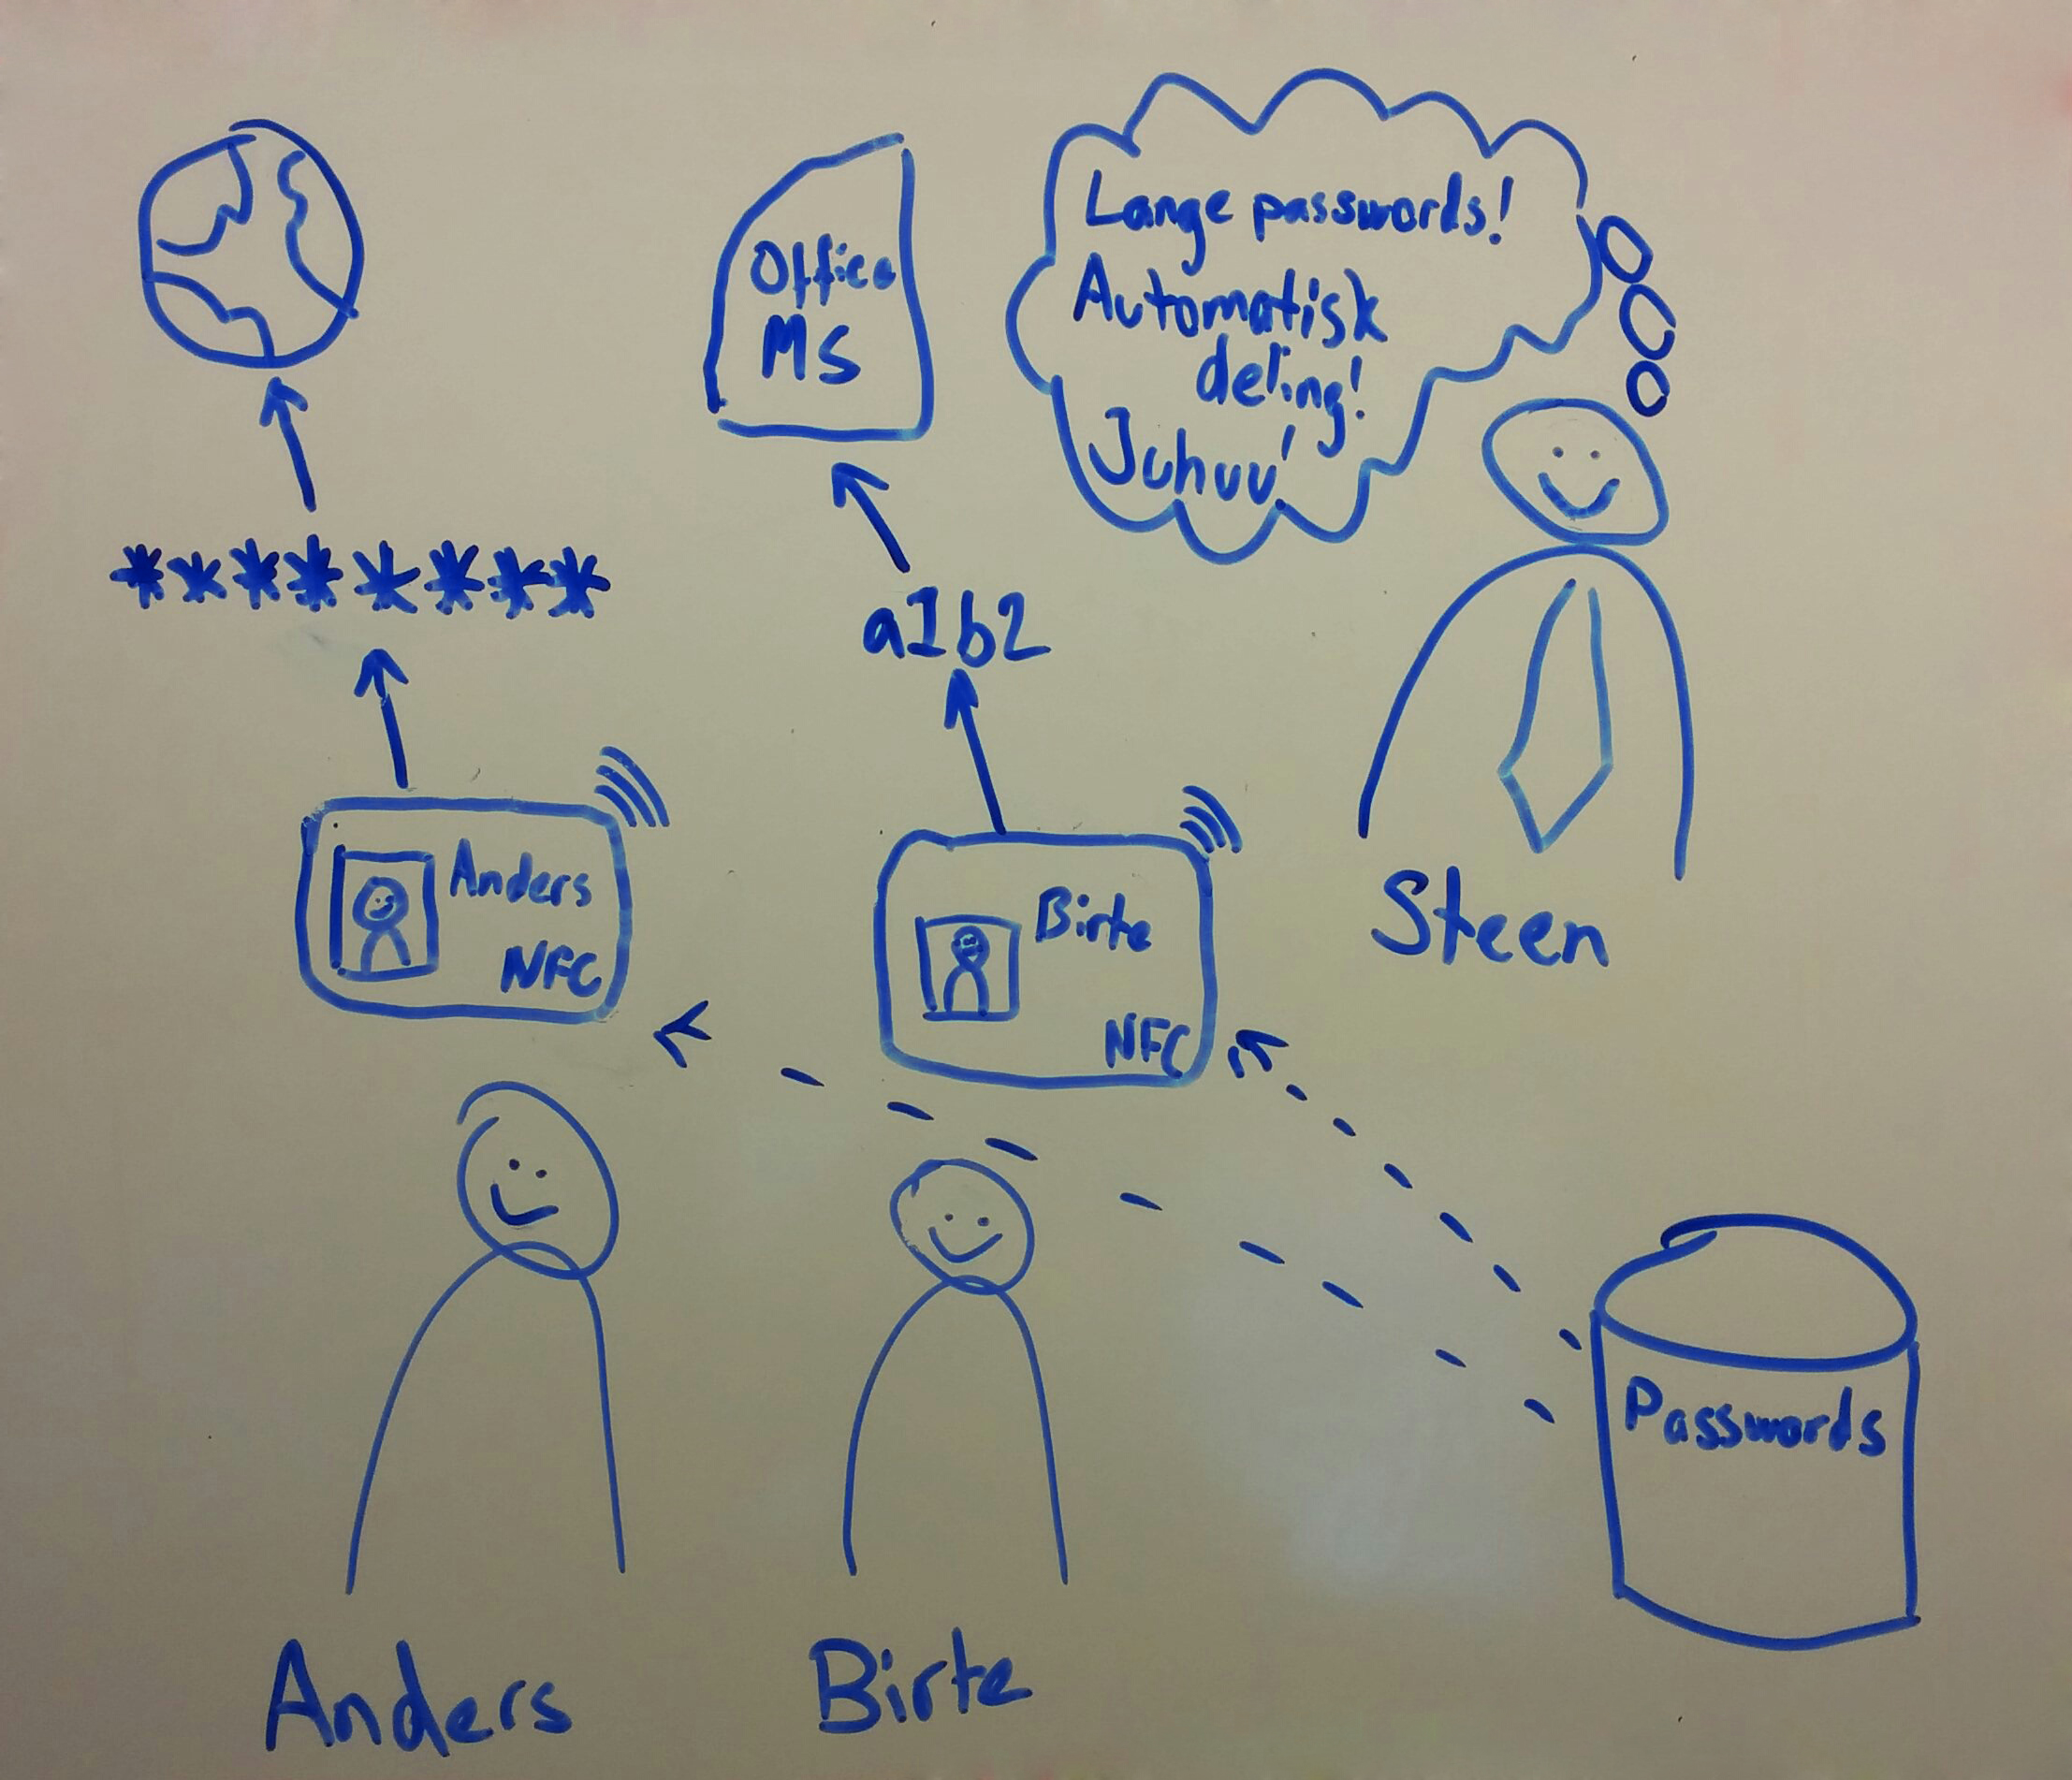 Lange passwords!
Automatisk
deling!
Juhuu!
Office
MS
********
a1b2
Anders
NFC
Birte
NFC
Steen
Passwords
Anders
Birte